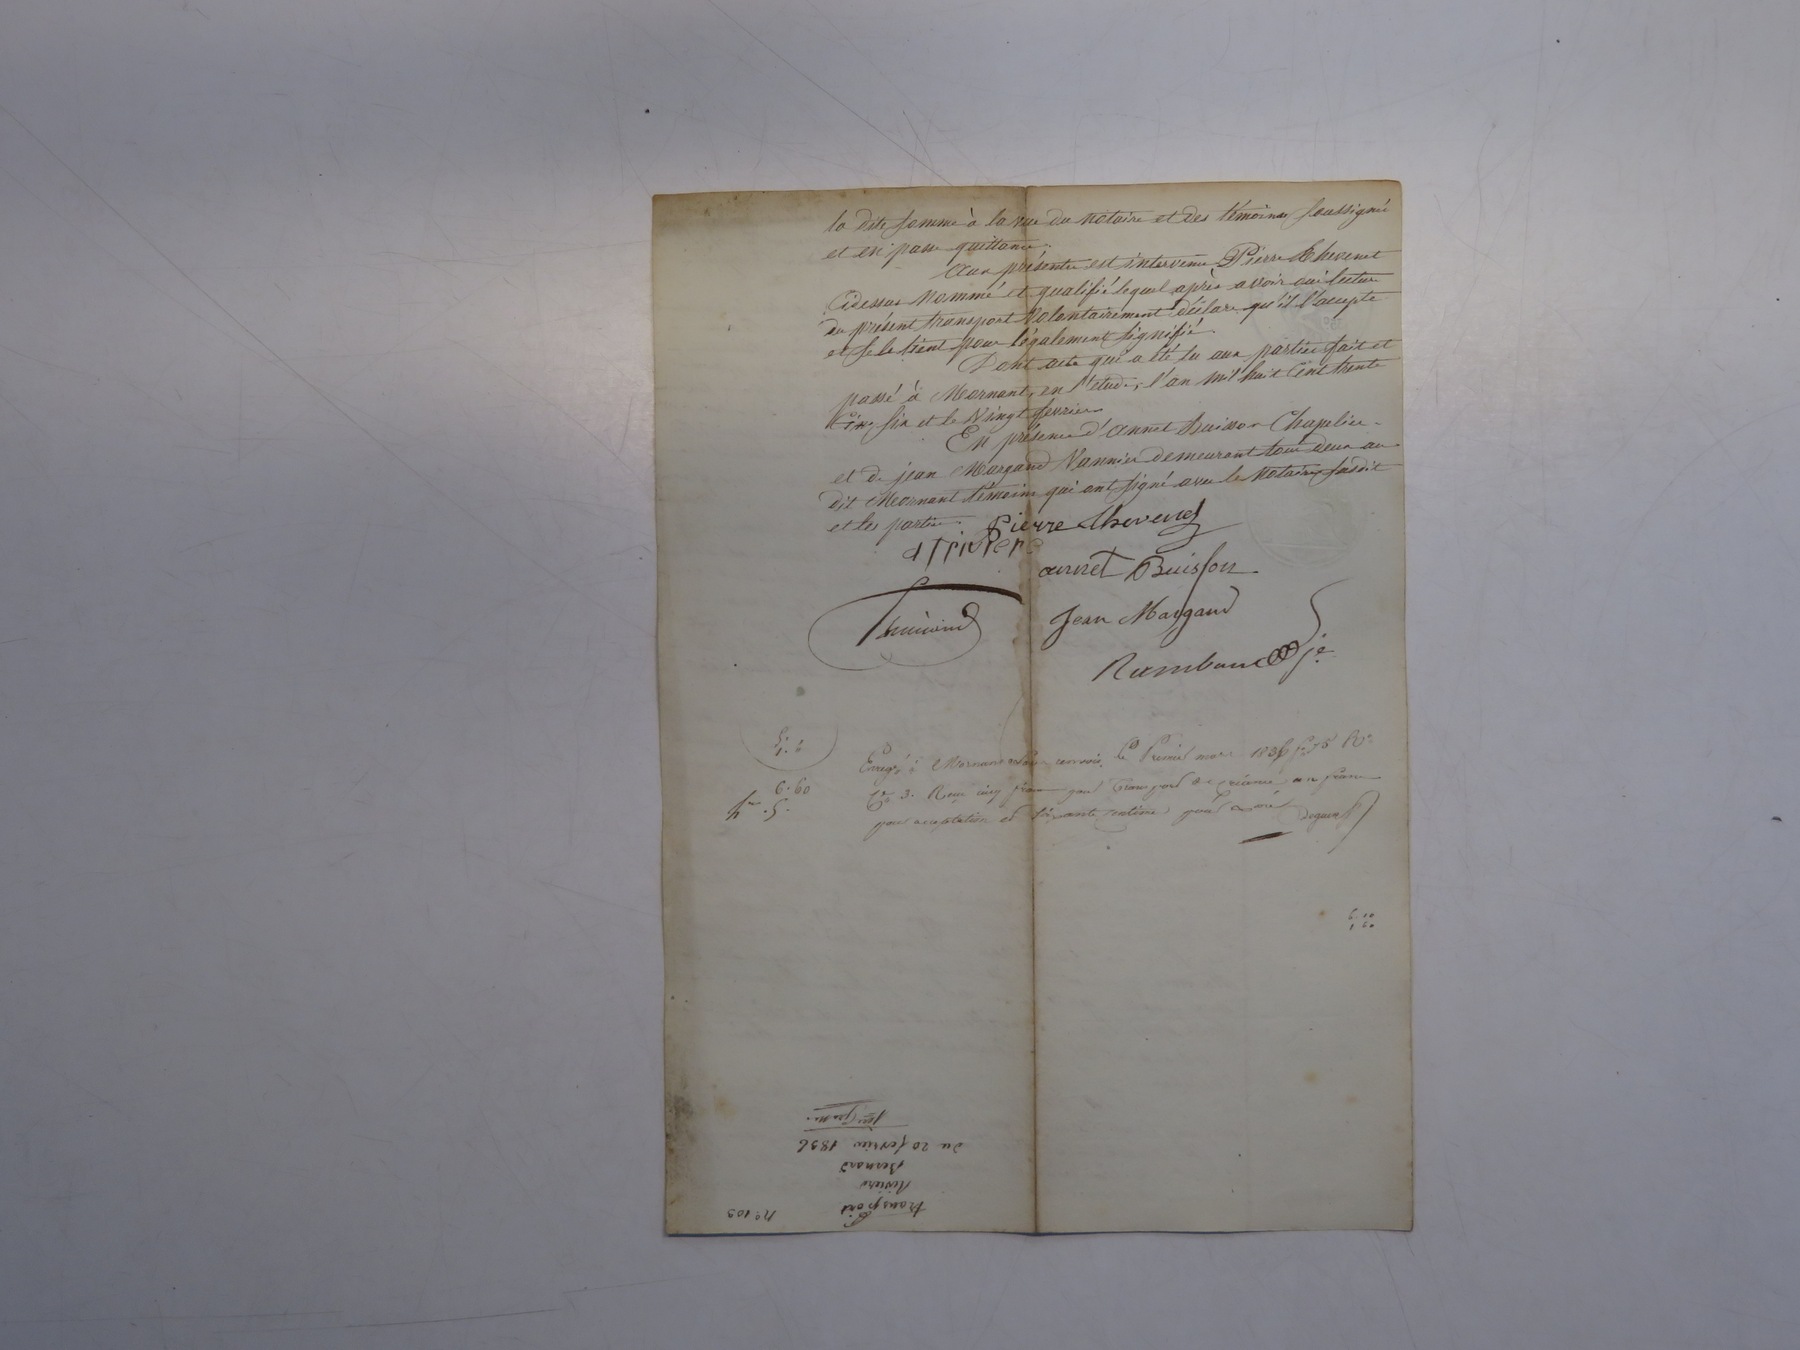 la dite somme à la vue du notaire et des témoins soussignés
et en passe quittance.
Aux présentes est intervenu Pierre Thevenet
Cidessus Nommé et qualifié lequel après avoir oui lecture
du présent transport Volontairement déclare qu'il l'accepte
et se le tient pour légalement signifié.
Dont acte qui a été lu aux parties fait et
passé à Mornant, en l'etude, l'an mil huit Cent trente
six et le Vingt fevrier
En présence d'annet buisson Chapelier
et de jean Margand Vannier demeurant tous deux au
dit Mornant témoins qui ont signé avec le Notaire susdit
et les parties.
Pierre thevenet
annet Buisson
Jean Margand
6.60
Enregé à Mornant le Premier mars 1836
3. Reçu cinq francs pour Transport de créance un franc
pour acceptation et soixante centimes pour
N° 103
transport
Riviere
Bernard
du 20 fevrier 1836